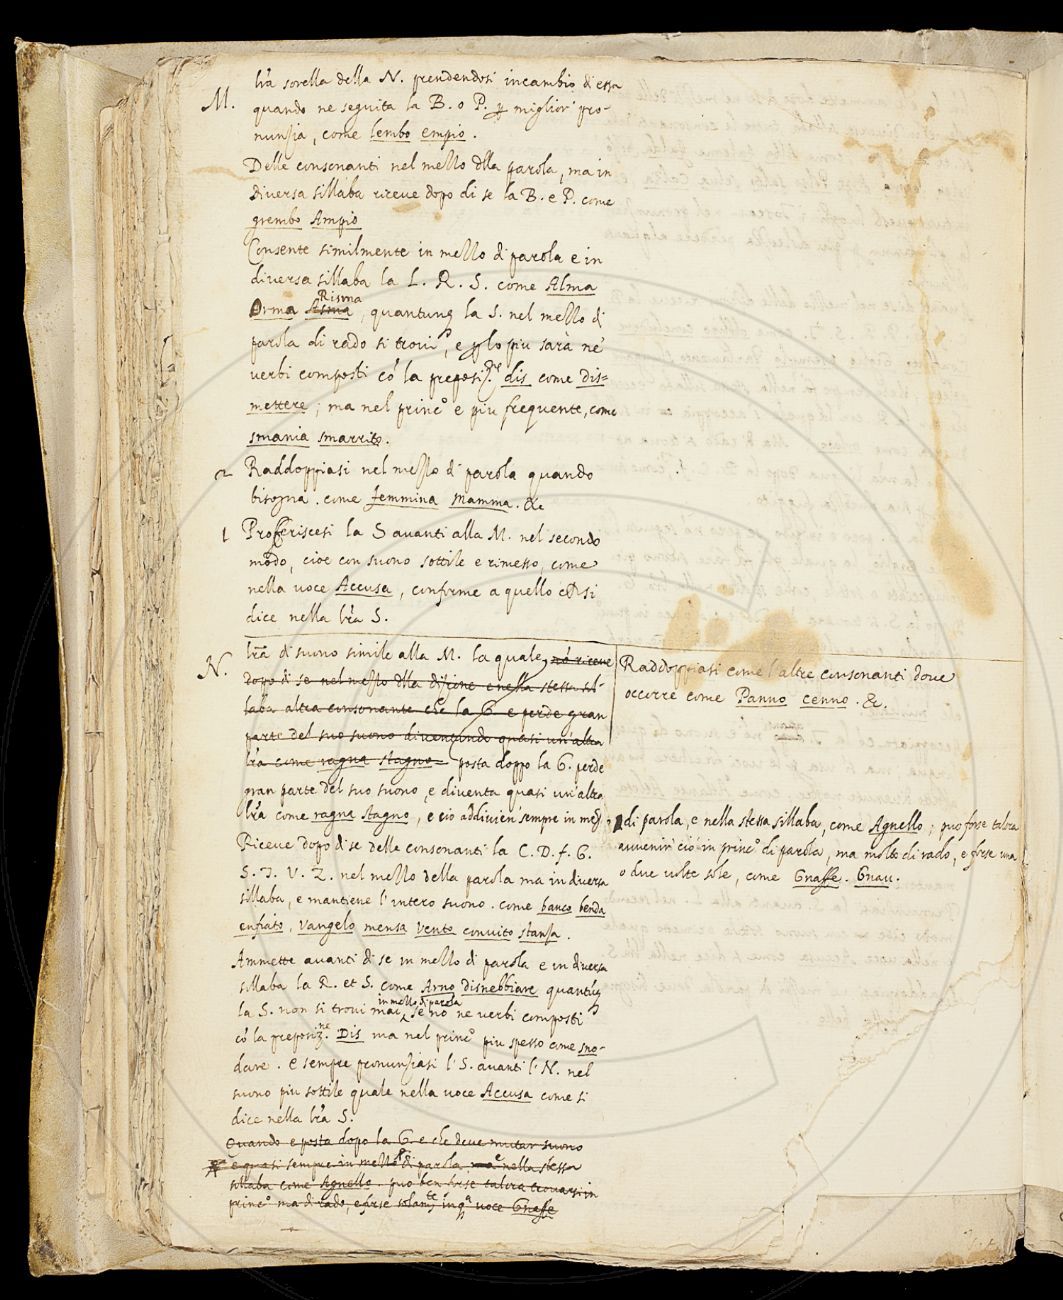 M. l'ra sorella della N. prendendosi incambio d'essa
quando ne seguita la B. o P. p miglior' pro-
nunzia, come lembo empio.
Delle consonanti nel mezzo dlla parola, ma in
diversa sillaba riceve dopo di se la B. e P. come
grembo Ampio
Consente similmente in mezzo di parola e in
diversa sillaba la L. R. S. come Alma
Risma
Orma Asma, quantunq la S. nel mezzo di
parola di rado si trovi, e p lo piu sarà ne'
verbi composti cō la preposiz.ne dis come dis=
mettere; ma nel princ.o e piu frequente, come
smania smarrito.
2 Raddoppiasi nel mezzo di parola quando
bisogna. come femmina Mamma. &c
1 Profferiscesi la S avanti alla M. nel secondo
modo, cioè con suono sottile e rimesso, come
nella voce Accusa, conforme a quello che si
dice nella l'ra S.
N. l'ra di suono simile alla M. la quale nō riceve
dopo di se nel mezzo dlla dizione e nella stessa sil-
laba altra consonante che la G. e perde gran
parte del suo suono diventando quasi un'altra
l'ra come ragna stagno= posta doppo la G. perde
gran parte del suo suono, e diventa quasi un'altra
l'ra come ragna stagno, e ciò addivien' sempre in mez.o
Riceve dopo di se delle consonanti la C. D. f. G.
S. T. V. Z. nel mezzo della parola ma in diversa
sillaba, e mantiene l'intero suono. come banco benda
enfiato, Vangelo mensa vento convito stanza.
Ammette avanti di se in mezzo di parola e in diversa
sillaba la R. et S. come Arno disnebbiare quantūq
in mezzo di parola
la S. non si trovi mai, se nō ne verbi composti
cō la preposiz.ne Dis ma nel princ.o piu spesso come sno-
dare. e sempre pronunziasi l'S. avanti l'N. nel
suono piu sottile quale nella voce Accusa come si
dice nella l'ra S.
Quando e posta dopo la G. e che deve mutar suono
e quasi sempre in mezzo di parola, e nella stessa
sillaba come Agnello. puo ben forse talora trovarsi in
princ.o ma di rado, e forse solam.te in q.a voce Gnaffe
Raddoppiasi come l'altre consonanti dove
occorre come Panno cenno. &c.
di parola, e nella stessa sillaba, come Agnello; puo forse talora
avvenir' ciò in princ.o di parola, ma molto di rado, e forse una
o due volte sole, come Gnaffe. Gnau.